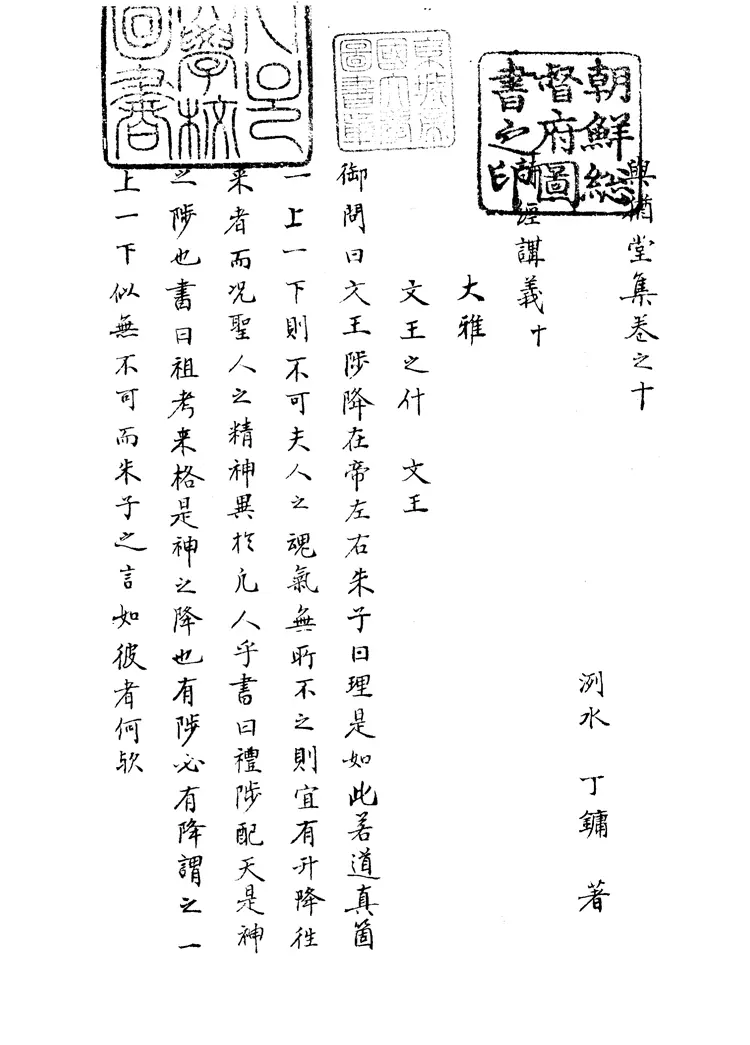 與猶堂集卷之十
洌水 丁鏞 著
詩經講義十
大雅
文王之什 文王
御問曰文王陟降在帝左右朱子曰理是如此若道真箇
一上一下則不可夫人之魂氣無所不之則宜有升降徃
来者而况聖人之精神異於凢人乎書曰禮陟配天是神
之陟也書曰祖考来格是神之降也有陟必有降謂之一
上一下似無不可而朱子之言如彼者何欤
朝鮮総
督府圖
書之印
圖書章
學校
圖書